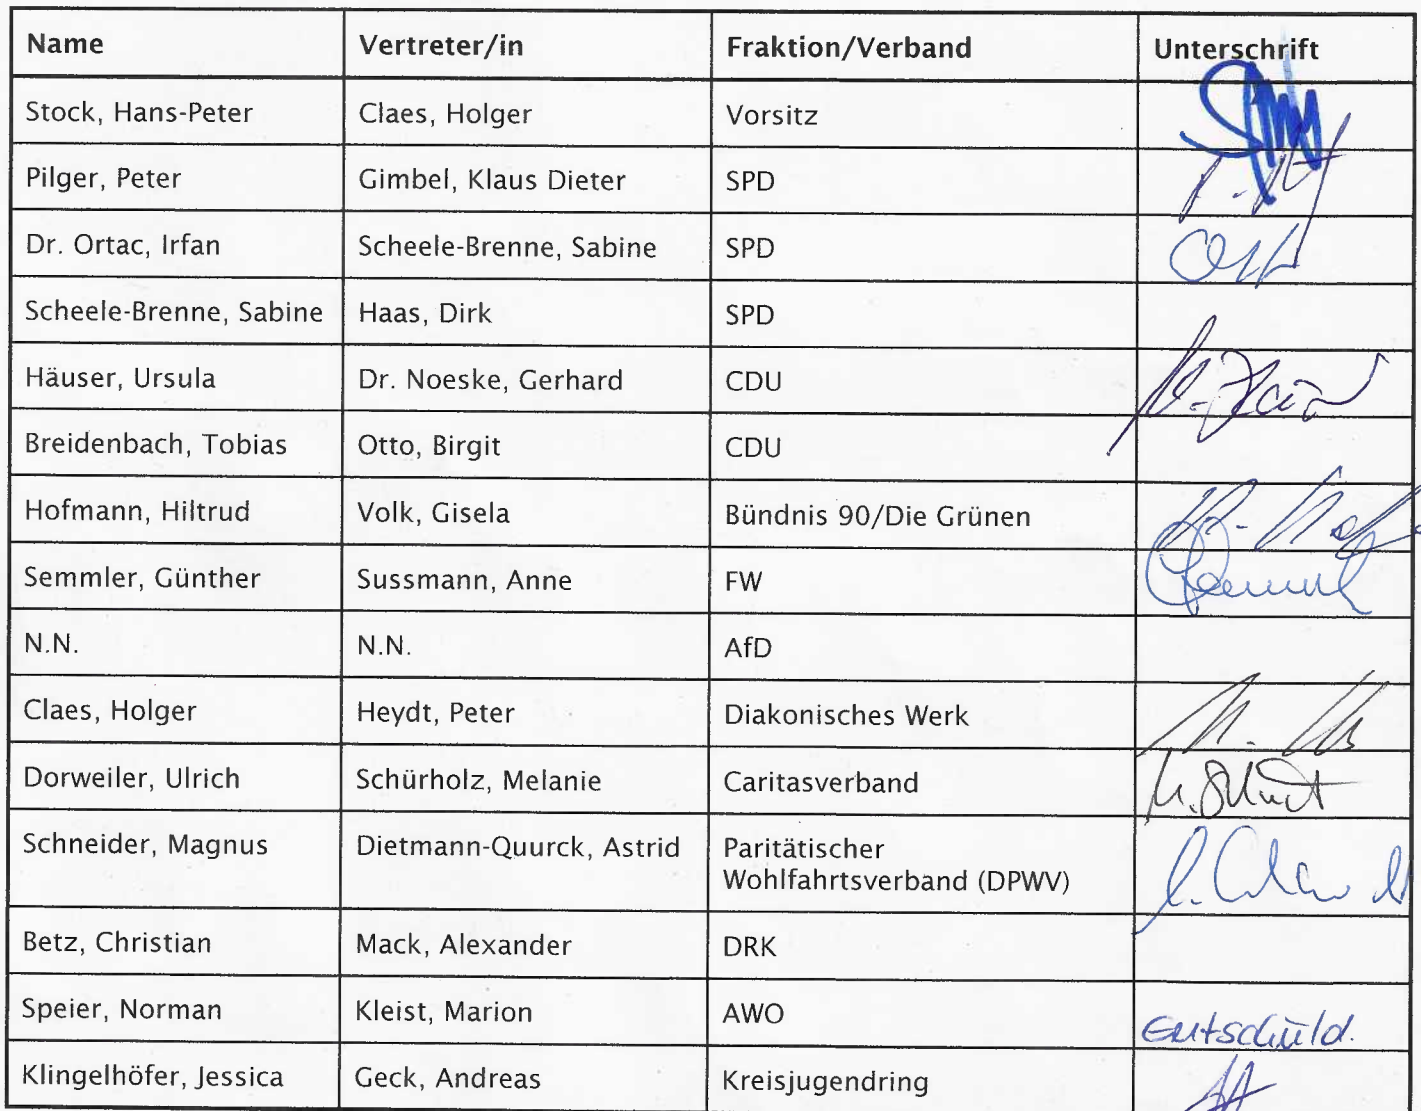 Name Vertreter/in Fraktion/Verband Unterschrift
Stock, Hans-Peter Claes, Holger Vorsitz
Pilger, Peter Gimbel, Klaus Dieter SPD
Dr. Ortac, Irfan Scheele-Brenne, Sabine SPD
Scheele-Brenne, Sabine Haas, Dirk SPD
Häuser, Ursula Dr. Noeske, Gerhard CDU
Breidenbach, Tobias Otto, Birgit CDU
Hofmann, Hiltrud Volk, Gisela Bündnis 90/Die Grünen
Semmler, Günther Sussmann, Anne FW
N.N. N.N. AfD
Claes, Holger Heydt, Peter Diakonisches Werk
Dorweiler, Ulrich Schürholz, Melanie Caritasverband
Schneider, Magnus Dietmann-Quurck, Astrid Paritätischer
Wohlfahrtsverband (DPWV)
Betz, Christian Mack, Alexander DRK
Speier, Norman Kleist, Marion AWO Entschuld.
Klingelhöfer, Jessica Geck, Andreas Kreisjugendring